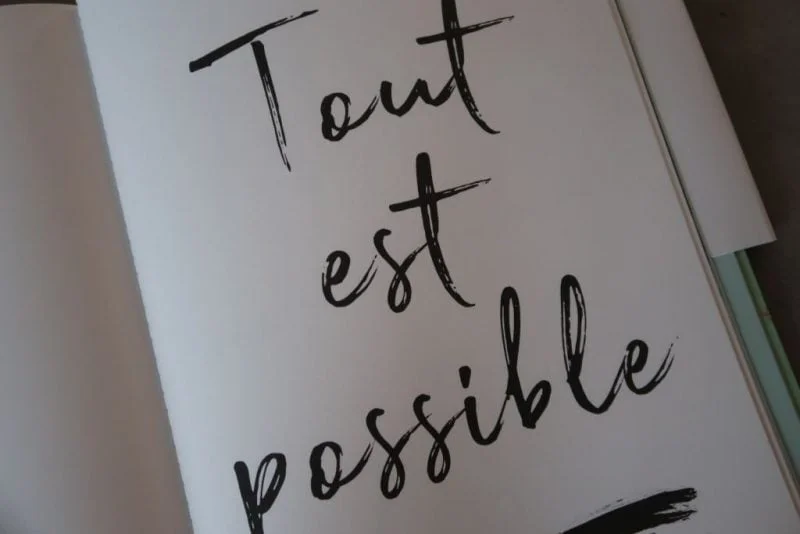 Tout
est
possible